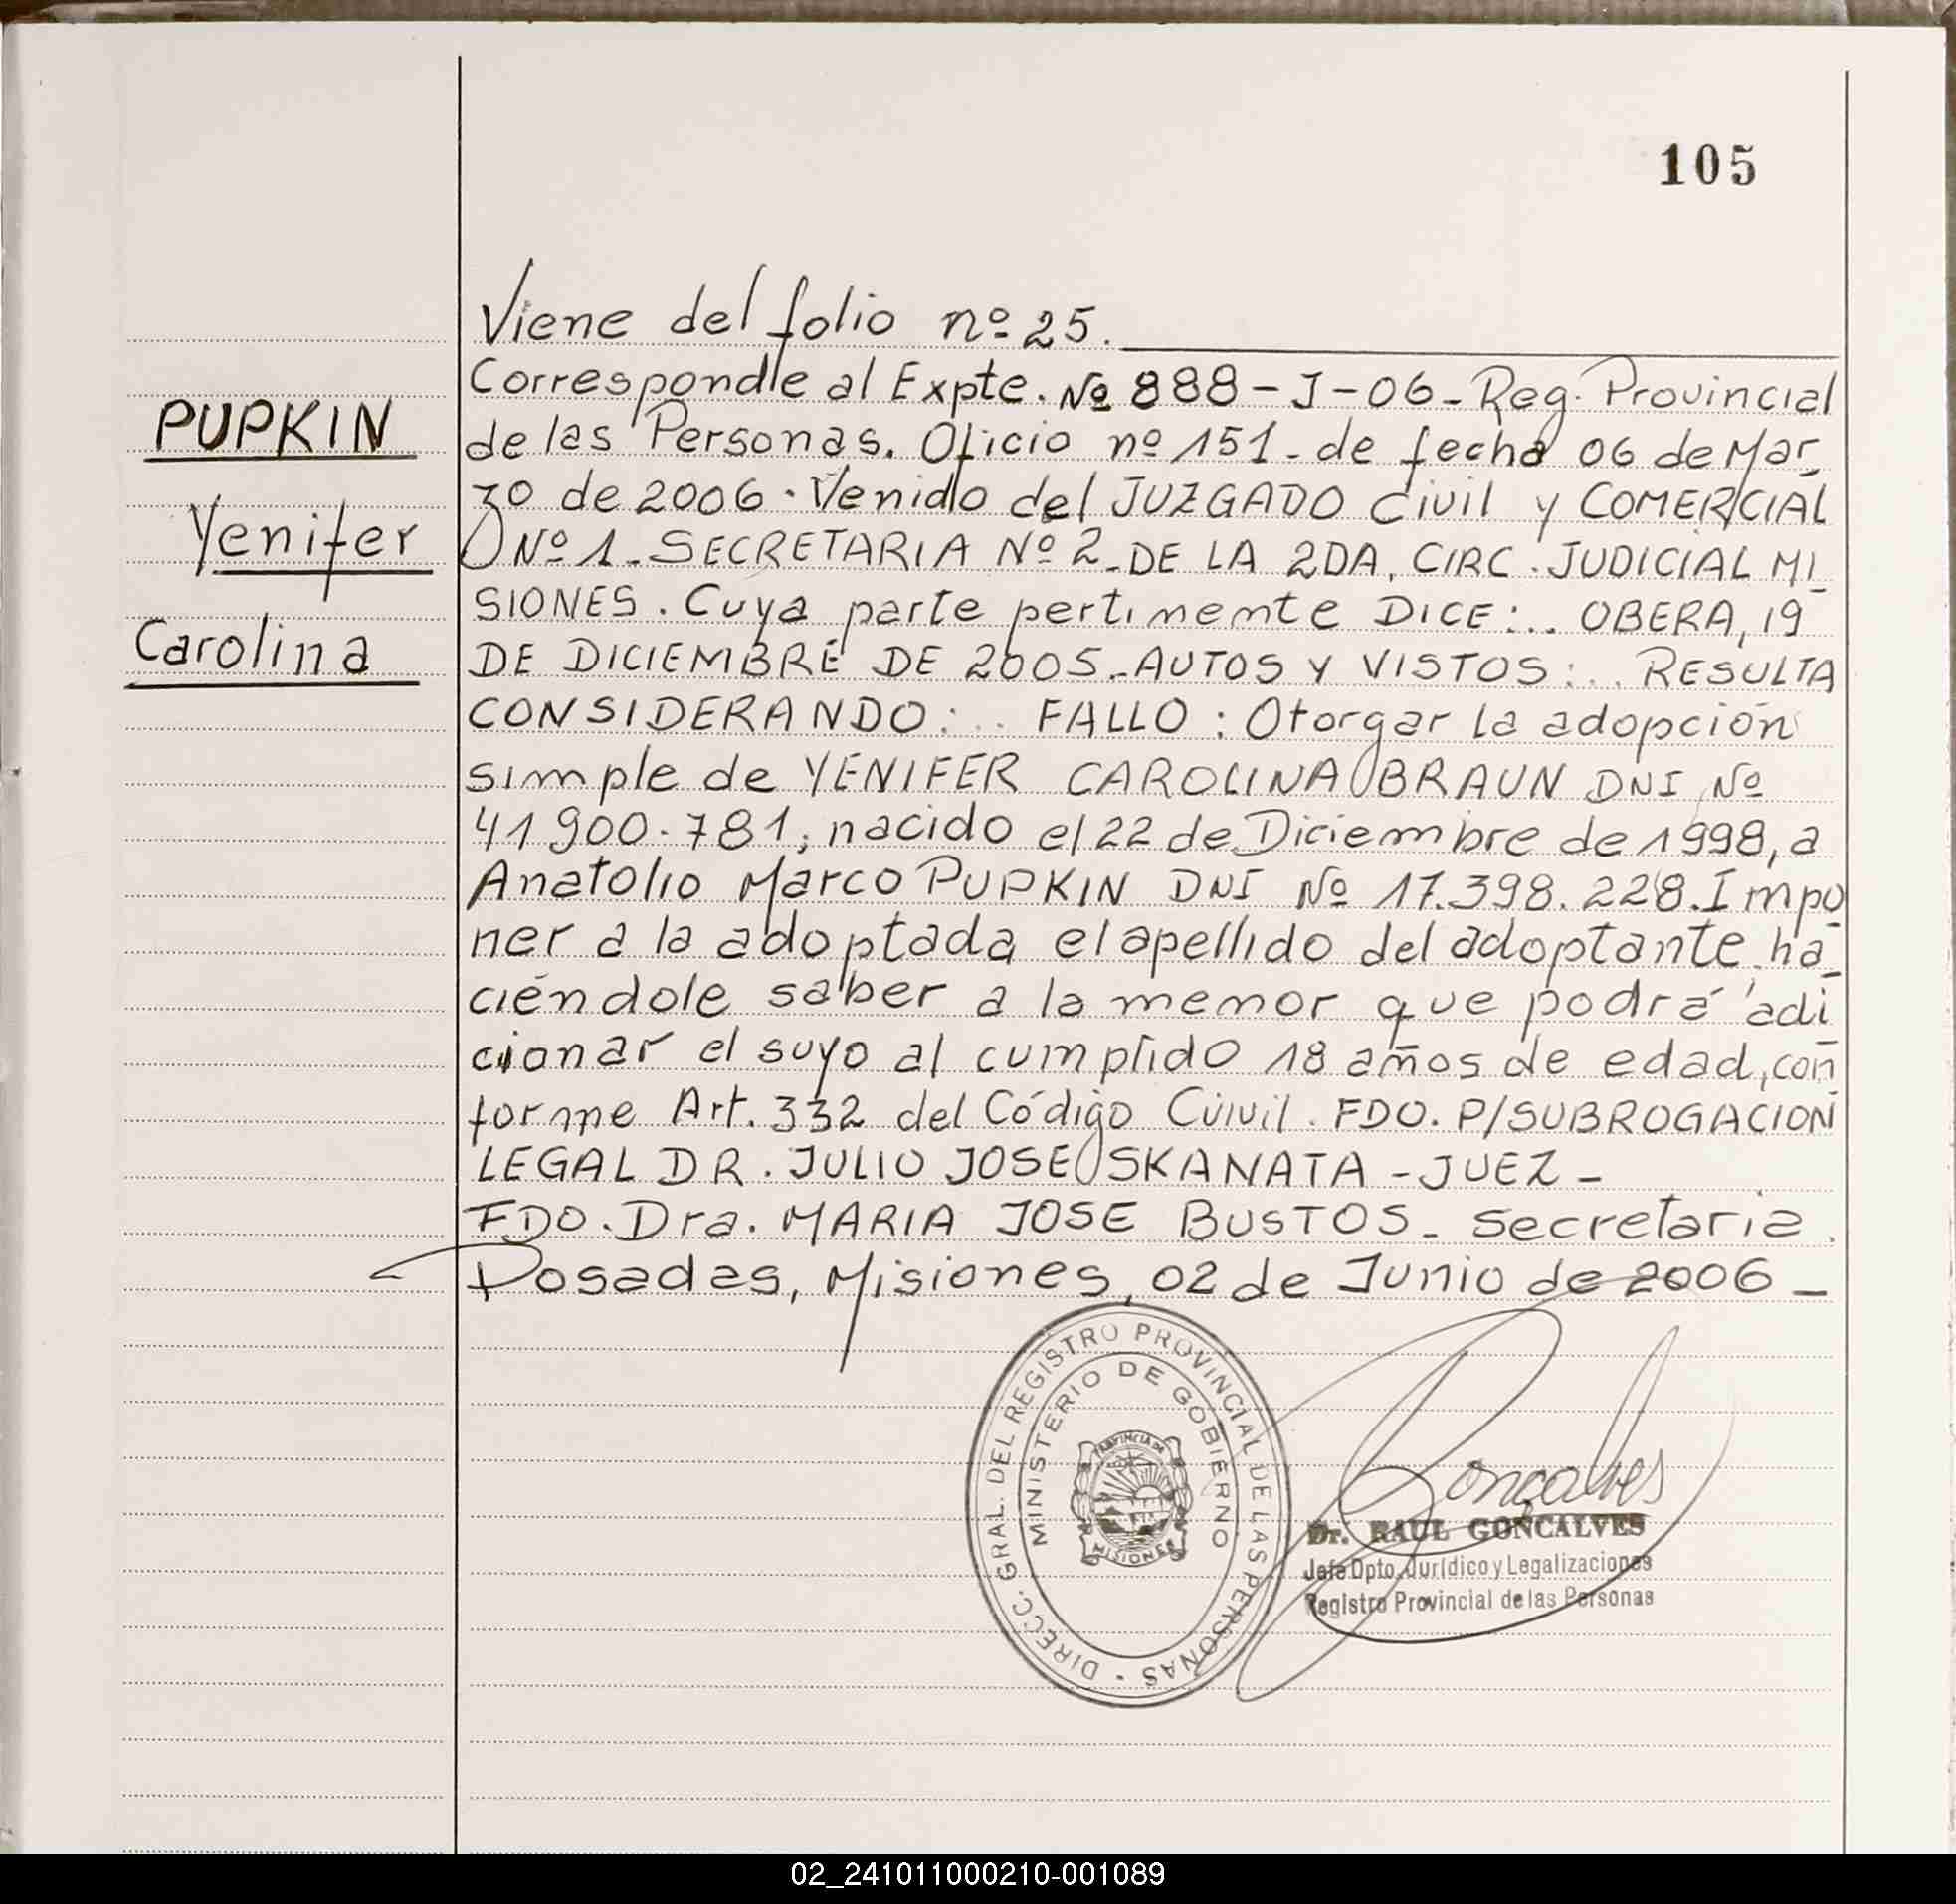 105
Viene del folio nº 25.
Corresponde al Expte. Nº 888-J-06- Reg. Provincial
PUPKIN
de las Personas. Oficio nº 151- de fecha 06 de Mar_
zo de 2006. Venido del JUZGADO Civil y COMERCIAL
Yenifer
Nº 1_ SECRETARIA Nº 2_ DE LA 2DA. CIRC. JUDICIAL MI_
SIONES. Cuya parte pertimemte DICE:... OBERA, 19
Carolina
DE DICIEMBRE DE 2005_ AUTOS Y VISTOS:... RESULTA
CONSIDERANDO:... FALLO: Otorgar la adopción
simple de YENIFER CAROLINA BRAUN DNI Nº
41.900.781, nacido el 22 de Diciembre de 1998, a
Anatolio Marco PUPKIN DNI Nº 17.398.228. Impo_
ner a la adoptada el apellido del adoptante, ha_
ciéndole saber a la memor que podrá adi_
cionar el suyo al cumplido 18 años de edad, con_
forme Art. 332 del Código Civil. FDO. P/SUBROGACION
LEGAL DR. JULIO JOSE SKANATA - JUEZ -
FDO. Dra. MARIA JOSE BUSTOS_ Secretaria.
Posadas, Misiones, 02 de Junio de 2006 _
DIRECC. GRAL. DEL REGISTRO PROVINCIAL DE LAS PERSONAS
MINISTERIO DE GOBIERNO
PROVINCIA DE
MISIONES
Goncalves
Dr. RAUL GONCALVES
Jefe Dpto. Jurídico y Legalizaciones
Registro Provincial de las Personas
02_241011000210-001089